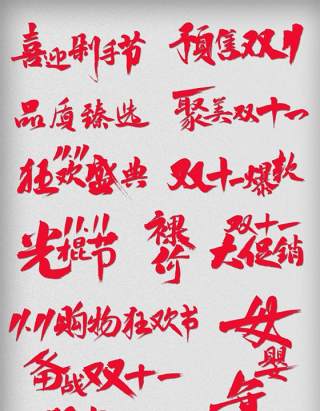 喜迎剁手节
预售双11
品质臻选
聚美双十一
狂欢盛典
双十一爆款
光棍节
裸价
双十一
大促销
11.11购物狂欢节
母婴
备战双十一